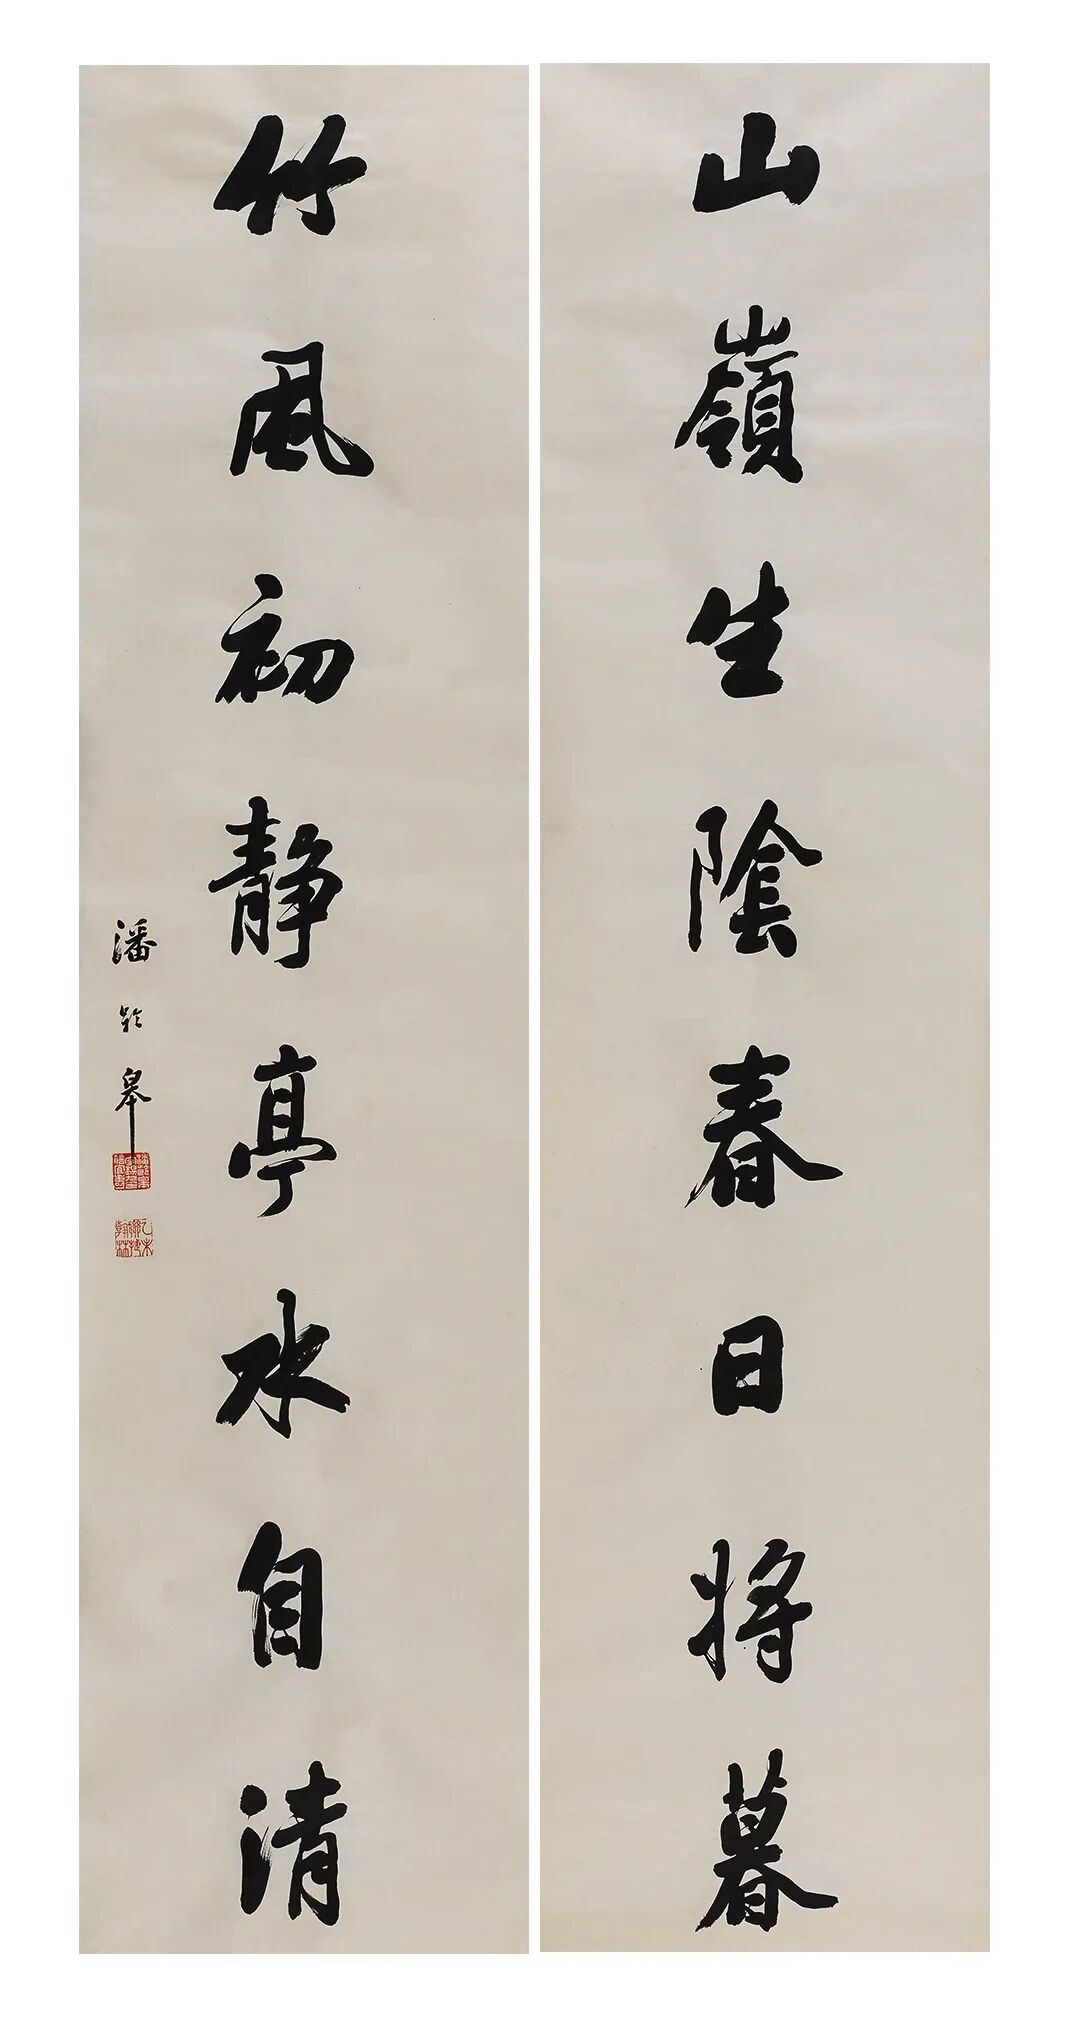 山嶺生陰春日將暮
竹風初靜亭水自清
潘齡皋
乙未
翰林